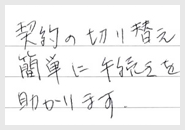 契約の切り替え
簡単に手続きを
助かります.